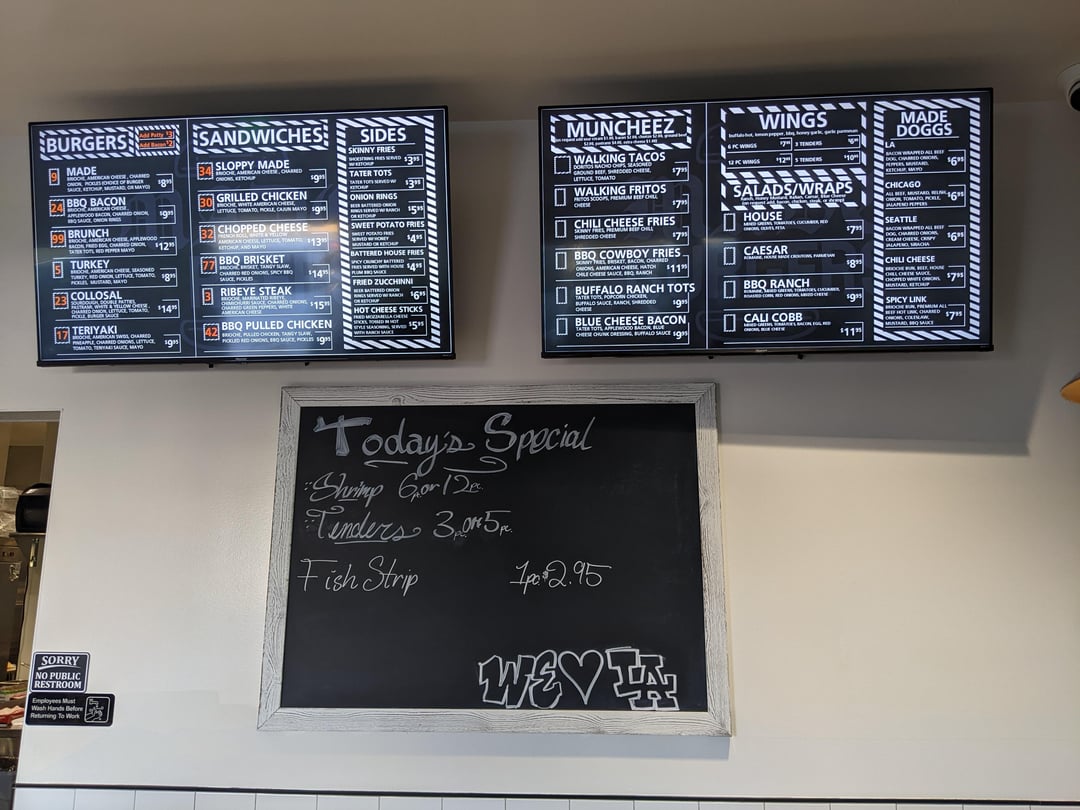 BURGERS
Add Patty $3
Add Bacon $2
9 MADE
BRIOCHE, AMERICAN CHEESE, CHARRED
ONION, PICKLES (CHOICE OF BURGER
SAUCE, KETCHUP, MUSTARD, OR MAYO)
$8
24 BBQ BACON
BRIOCHE, AMERICAN CHEESE,
APPLEWOOD BACON, CHARRED ONION,
BBQ SAUCE, ONION RINGS
$9
99 BRUNCH
BRIOCHE, AMERICAN CHEESE, APPLEWOOD
BACON, FRIED EGG, CHARRED ONION,
TATER TOTS, RED PEPPER MAYO
$12
5 TURKEY
BRIOCHE, AMERICAN CHEESE, SEASONED
TURKEY, RED ONION, LETTUCE, TOMATO,
PICKLES, MUSTARD, MAYO
$8
23 COLLOSAL
SOURDOUGH DOUBLE PATTIES,
PASTRAMI, WHITE & YELLOW CHEESE,
CHARRED ONIONS, LETTUCE, TOMATO,
PICKLE, BURGER SAUCE
$14
17 TERIYAKI
BRIOCHE, AMERICAN SWISS, CHARRED
PINEAPPLE, CHARRED ONIONS, LETTUCE,
TOMATO, TERIYAKI SAUCE, MAYO
$9
SANDWICHES
34 SLOPPY MADE
BRIOCHE, AMERICAN CHEESE, CHARRED
ONIONS, KETCHUP
$9
30 GRILLED CHICKEN
FRENCH ROLL, WHITE & YELLOW CHEESE,
LETTUCE, TOMATO, PICKLE, CAJUN MAYO
$9
32 CHOPPED CHEESE
FRENCH ROLL, WHITE & YELLOW
AMERICAN CHEESE, LETTUCE, TOMATO,
KETCHUP, AND MAYO
$13
77 BBQ BRISKET
BRIOCHE, BRISKET, TANGY SLAW,
CHARRED RED ONIONS, SPICY BBQ
$14
3 RIBEYE STEAK
BRIOCHE, MARINATED RIBEYE,
CHIMICHURRI SAUCE, CHARRED ONIONS,
CHARRED GREEN PEPPERS, WHITE
AMERICAN CHEESE, MAYO
$15
42 BBQ PULLED CHICKEN
BRIOCHE, PULLED CHICKEN, TANGY SLAW,
PICKLED RED ONIONS, BBQ SAUCE, PICKLES
$9
SIDES
SKINNY FRIES
SHOESTRING FRIES SERVED
W/ KETCHUP
$3
TATER TOTS
TATER TOTS SERVED W/
KETCHUP
$3
ONION RINGS
BEER BATTERED ONION
RINGS SERVED W/ RANCH
OR KETCHUP
$5
SWEET POTATO FRIES
SWEET POTATO FRIES
SERVED W/ HONEY
MUSTARD OR KETCHUP
$4
BATTERED HOUSE FRIES
SPICY CRUNCHY BATTERED
FRIES SERVED WITH HOUSE
PLUM BBQ SAUCE
$4
FRIED ZUCCHINNI
BEER BATTERED ONION
RINGS SERVED W/ RANCH
OR KETCHUP
$6
HOT CHEESE STICKS
FRIED MOZZARELLA CHEESE
STICKS, TOSSED IN HOT
STYLE SEASONING, SERVED
WITH RANCH SAUCE
$5
MUNCHEEZ
WALKING TACOS
DORITOS NACHO CHIPS, SEASONED
GROUND BEEF, SHREDDED CHEESE,
LETTUCE, TOMATO
$7
WALKING FRITOS
FRITOS SCOOPS, PREMIUM BEEF CHILI,
CHEESE
$7
CHILI CHEESE FRIES
SKINNY FRIES, PREMIUM BEEF CHILI,
SHREDDED CHEESE
$7
BBQ COWBOY FRIES
SKINNY FRIES, BRISKET, BACON, CHARRED
ONIONS, AMERICAN CHEESE, HATCH
CHILE CHEESE SAUCE, BBQ, RANCH
$11
BUFFALO RANCH TOTS
TATER TOTS, POPCORN CHICKEN,
BUFFALO SAUCE, RANCH, SHREDDED
CHEESE
$9
BLUE CHEESE BACON
TATER TOTS, APPLEWOOD BACON, BLUE
CHEESE CHUNK DRESSING, BUFFALO SAUCE
$9
WINGS
buffalo hot, lemon pepper, bbq, honey garlic, garlic parmesan
6 PC WINGS $7 3 TENDERS $6
12 PC WINGS $12 5 TENDERS $10
SALADS/WRAPS
HOUSE
MIXED GREENS, TOMATOES, CUCUMBER, RED
ONIONS, OLIVES, FETA
$7
CAESAR
ROMAINE, HOUSE MADE CROUTONS, PARMESAN
$8
BBQ RANCH
ROMAINE, MIXED GREENS, TOMATOES, CUCUMBER,
ROASTED CORN, RED ONIONS, MIXED CHEESE
$9
CALI COBB
MIXED GREENS, TOMATOES, BACON, EGG, RED
ONIONS, BLUE CHEESE
$11
MADE
DOGGS
LA
BACON WRAPPED ALL BEEF
DOG, CHARRED ONIONS,
PEPPERS, MUSTARD,
KETCHUP, MAYO
$6
CHICAGO
ALL BEEF, MUSTARD, RELISH,
ONIONS, TOMATO, PICKLE,
JALAPENO PEPPERS
$6
SEATTLE
BACON WRAPPED ALL BEEF
DOG, CHARRED ONIONS,
CREAM CHEESE, CRISPY
JALAPENO, SRIRACHA
$6
CHILI CHEESE
ALL BEEF DOG, HOUSE
CHILI, CHEESE SAUCE,
CHOPPED WHITE ONIONS,
MUSTARD
$7
SPICY LINK
BRIOCHE BUN, PREMIUM ALL
BEEF HOT LINK, CHARRED
ONIONS, COLESLAW,
MUSTARD, BBQ SAUCE
$7
Today's Special
Shrimp 6pc or 12pc.
Tenders 3pc or 5pc.
Fish Strip 1pc $2.95
WE LA
SORRY
NO PUBLIC
RESTROOM
Employees Must
Wash Hands Before
Returning To Work